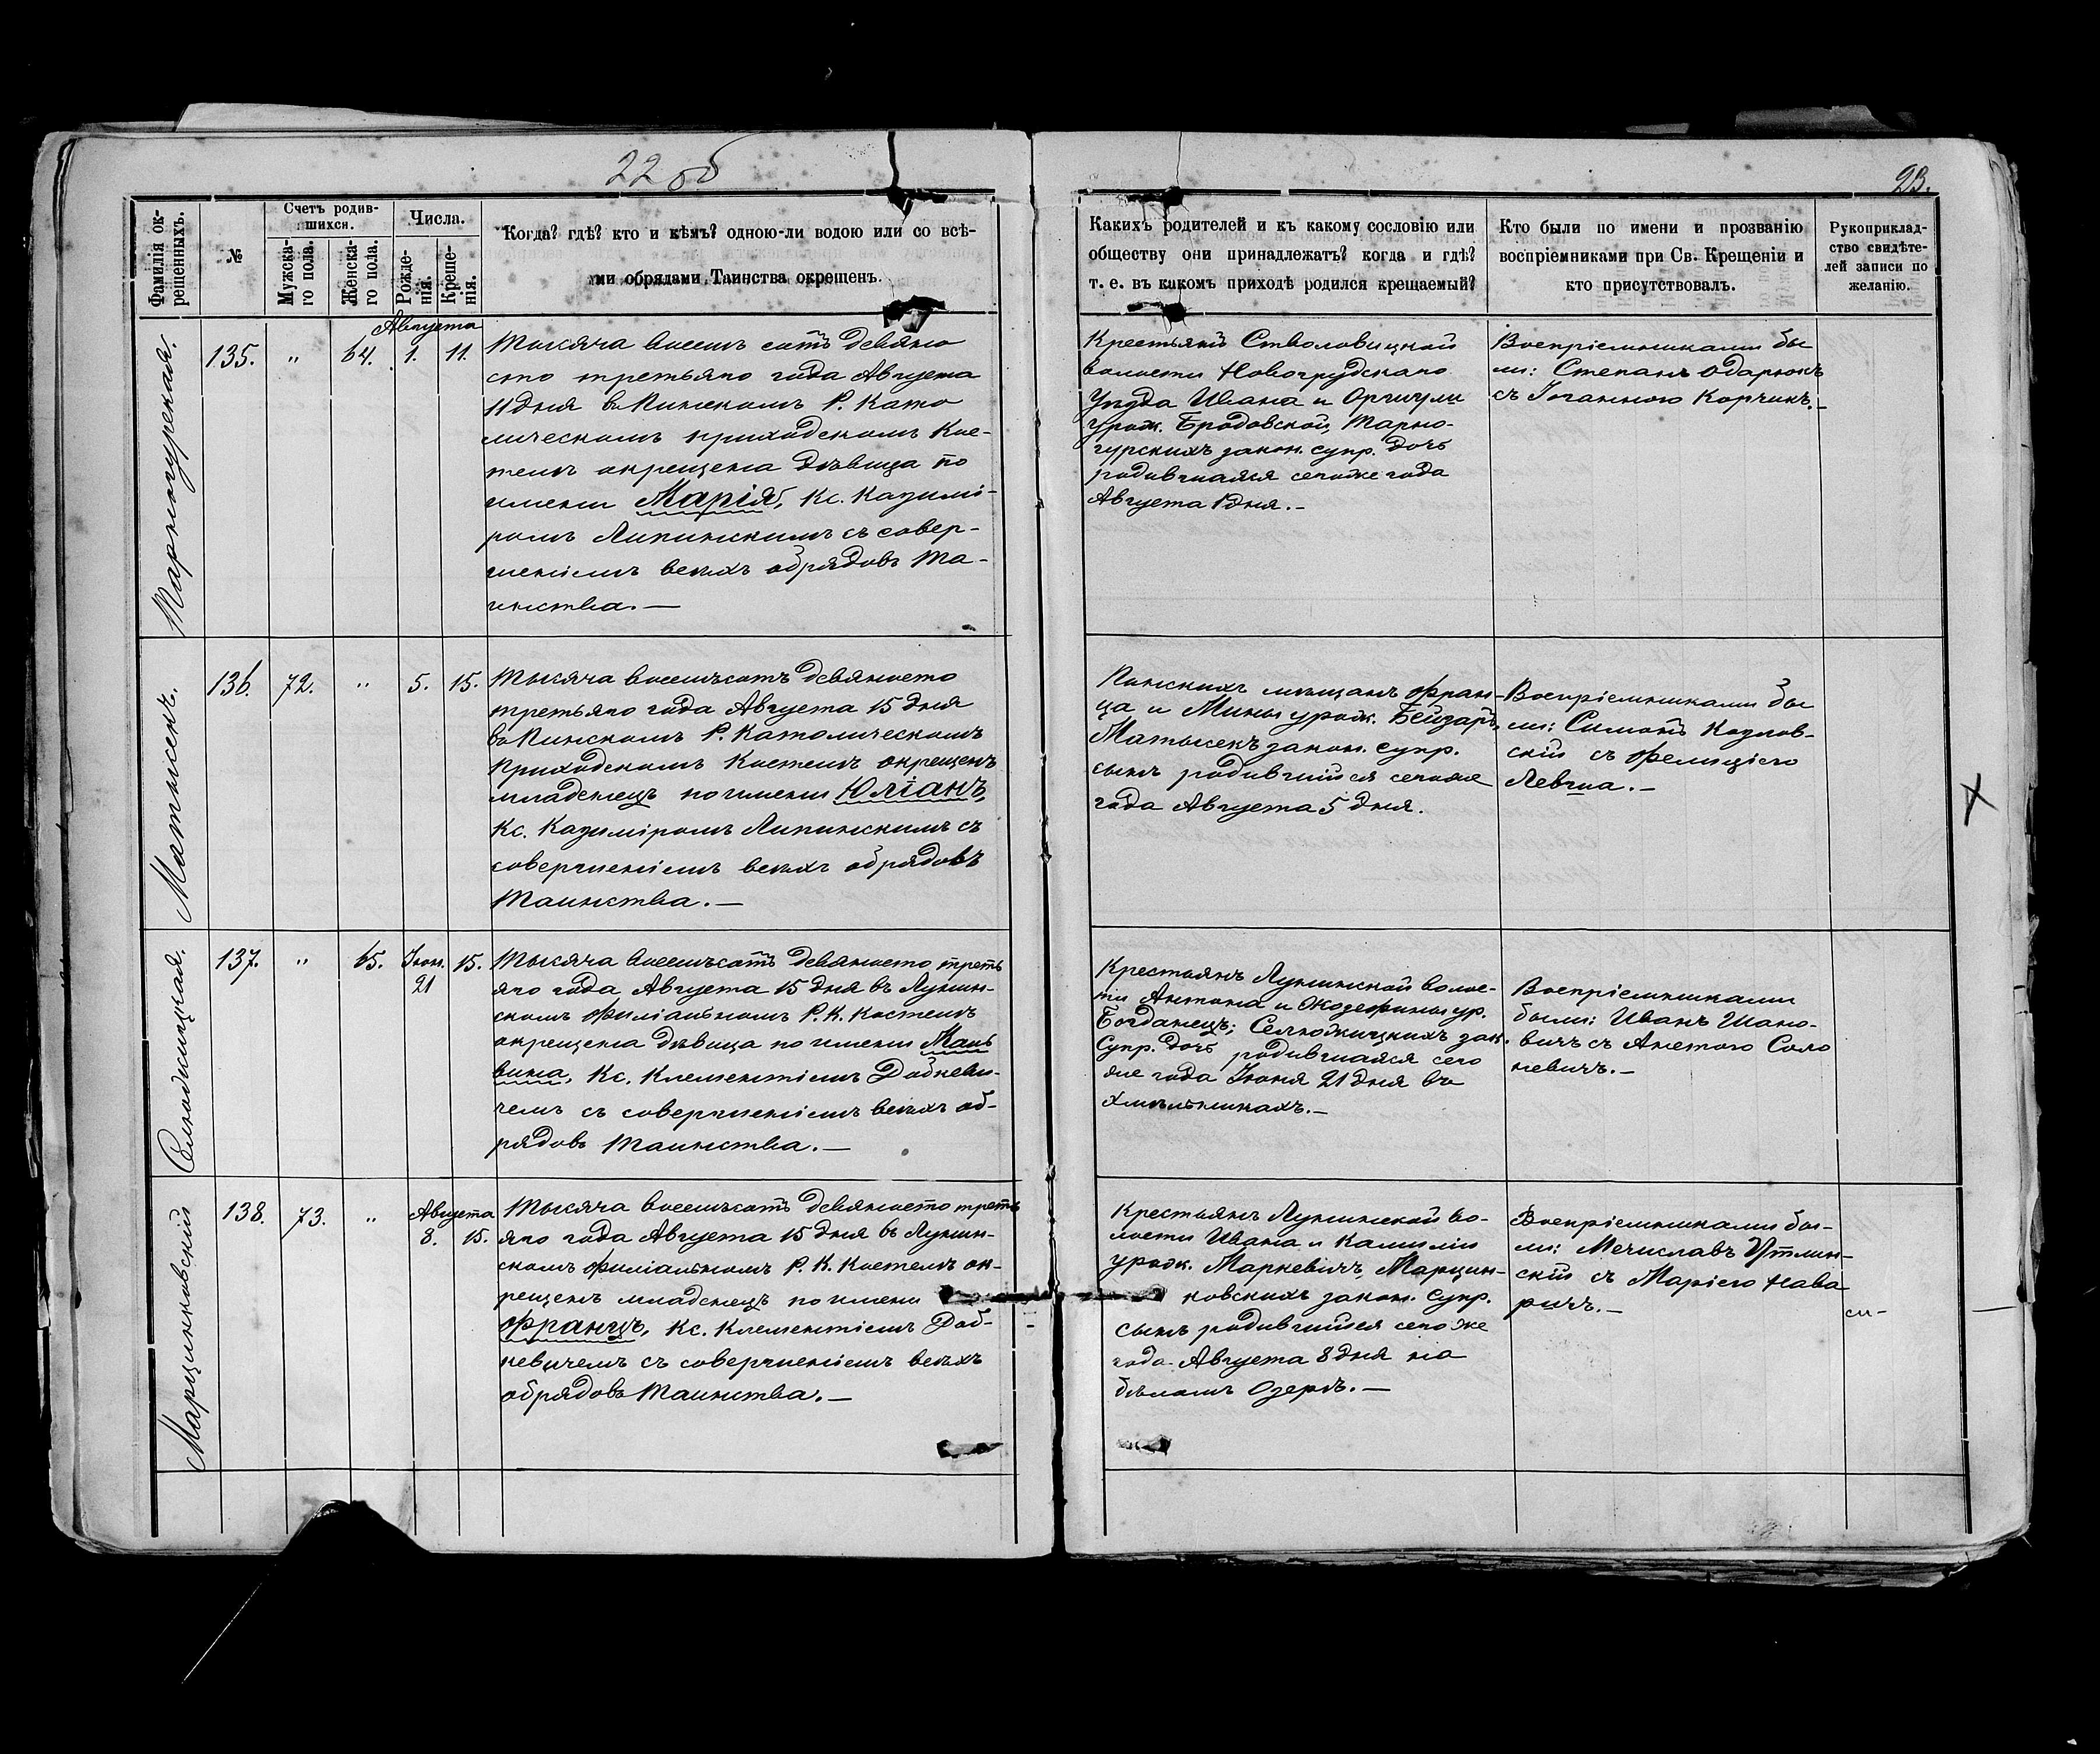 22 об
23.
Фамилія ок-
рещенныхъ.
№
Счетъ родив-
шихся.
Мужска-
го пола.
Женска-
го пола.
Числа.
Рожде-
нія.
Креще-
нія.
Когда? гдѣ? кто и кѣмъ? одною-ли водою или со всѣ-
ми обрядами Таинства окрещенъ.
Каких родителей и къ какому сословію или
обществу они принадлежатъ? когда и гдѣ?
т. е. въ какомъ приходѣ родился крещаемый?
Кто были по имени и прозванію
воспріемниками при Св. Крещеніи и
кто присутствовалъ.
Рукоприклад-
ство свидѣте-
лей записи по
желанію.
Тарногурская.
135.
"
64.
Августа
1. 11.
Тысяча восемъ сотъ девяно
сто третьяго года Августа
11 дня въ Пинскомъ Р. Като
лическомъ приходскомъ Кос-
телѣ окрещена дѣвица по
имени Марія, Кс. Казимі-
ромъ Липинскимъ съ совер-
шеніемъ всѣхъ обрядовъ Та-
инства.—
Крестьянъ Столовицкой
волости Новогрудскаго
Уѣзда Ивана и
урож. Бродовской, Тарно-
гурскихъ закон. супр. дочь
родившаяся сегоже года
Августа 1 дня.—
Воспріемниками бы
ли: Степанъ Одарюкъ
съ Іоганною Корчикъ.—
Матысекъ.
136.
72.
"
5. 15.
Тысяча восемьсотъ девяносто
третьяго года Августа 15 дня
въ Пинскомъ Р. Католическомъ
Приходскомъ Костелѣ окрещенъ
младенецъ по имени Юліанъ,
Кс. Казиміромъ Липинскимъ съ
совершеніемъ всѣхъ обрядовъ
Таинства.—
Пинскихъ мѣщанъ Фран-
ца и Мины урож. Бейзаръ,
Матысекъ закон. супр.
сынъ родившійся сегоже
года Августа 5 дня.
Воспріемниками бы
ли: Симонъ Козлов-
скій съ Фелиціею
Левша.—
Селюжицкая.
137.
"
65.
Іюн.
21
15.
Тысяча восемьсотъ девяносто треть
яго года Августа 15 дня въ Лунин-
скомъ Филіальномъ Р. К. Костелѣ
окрещена дѣвица по имени Маль
вина, Кс. Клементіемъ Добкеви-
чемъ съ совершеніемъ всѣхъ об-
рядовъ Таинства.—
Крестьянъ Лунинской волос-
ти Антона и Жозефины ур.
Богданецъ; Селюжицкихъ зак.
Супр. дочь родившаяся сего
же года Іюня 21 дня въ
Хмѣльникахъ.—
Воспріемниками
были: Иванъ Шано-
вичъ съ Анетою Соло
невичъ.—
Марцинковскій
138.
73.
"
Августа
8. 15.
Тысяча восемьсотъ девяносто треть
яго года Августа 15 дня въ Лунин-
скомъ Филіальномъ Р. К. Костелѣ ок-
рещенъ младенецъ по имени
Францъ, Кс. Клементіемъ Доб-
кевичемъ съ совершеніемъ всѣхъ
обрядовъ Таинства.—
Крестьянъ Лунинской во-
лости Ивана и Камиліи
урож. Маркевичъ, Марцин-
ковскихъ закон. Супр.
сынъ родившійся сего же
года Августа 8 дня на
бѣломъ Озерѣ.—
Воспріемниками бы-
ли: Мечиславъ
скій съ Маріею Нава
ричъ.—